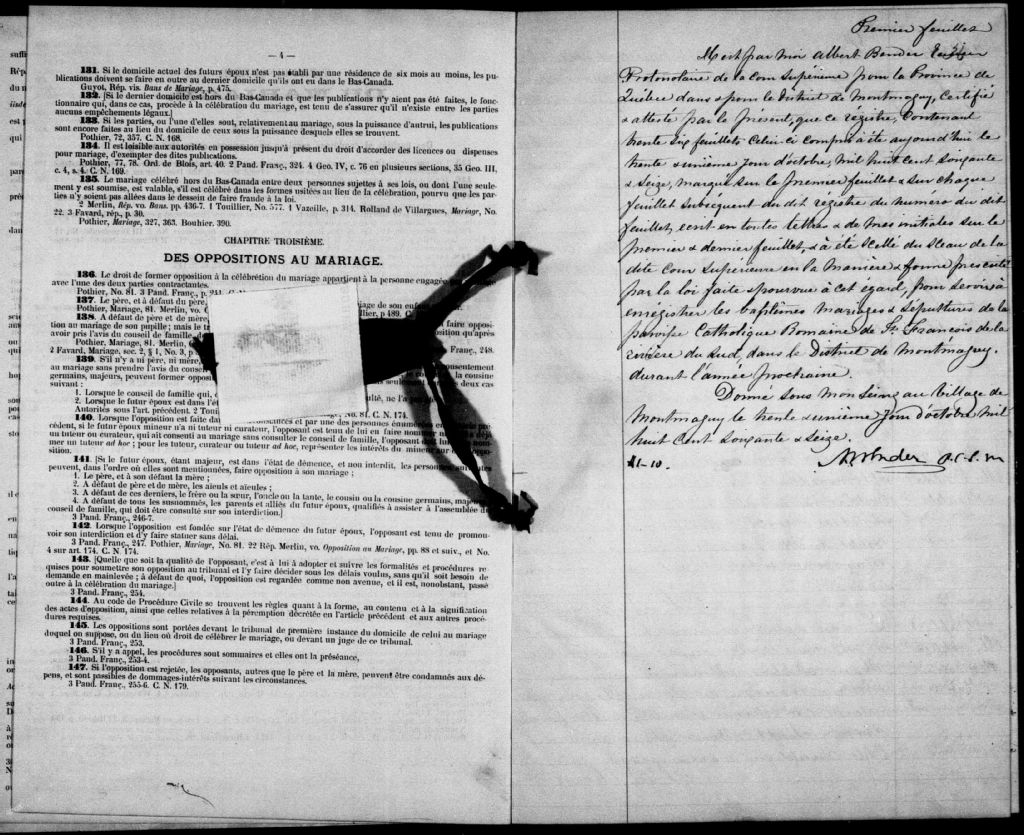 — 4 —
131. Si le domicile actuel des futurs époux n'est pas établi par une résidence de six mois au moins, les pu-
blications doivent se faire en outre au dernier domicile qu'ils ont eu dans le Bas-Canada.
Guyot, Rép. vis. Bans de Mariage, p. 475.
132. [Si le dernier domicile est hors du Bas-Canada et que les publications n'y aient pas été faites, le fonc-
tionnaire qui, dans ce cas, procède à la célébration du mariage, est tenu de s'assurer qu'il n'existe entre les parties
aucuns empêchements légaux.]
133. Si les parties, ou l'une d'elles sont, relativement au mariage, sous la puissance d'autrui, les publications
sont encore faites au lieu du domicile de ceux sous la puissance desquels elles se trouvent.
Pothier, 72, 357. C. N. 168.
134. Il est loisible aux autorités en possession jusqu'à présent du droit d'accorder des licences ou dispenses
pour mariage, d'exempter des dites publications.
Pothier, 77, 78. Ord. de Blois, art. 40. 2 Pand. Franç., 324. 4 Geo. IV, c. 76 en plusieurs sections, 35 Geo. III,
c. 4, s. 4. C. N. 169.
135. Le mariage célébré hors du Bas-Canada entre deux personnes sujettes à ses lois, ou dont l'une seule-
ment y est soumise, est valable, s'il est célébré dans les formes usitées au lieu de la célébration, pourvu que les par-
ties n'y soient pas allées dans le dessein de faire fraude à la loi.
2 Merlin, Rép. vo. Bans. pp. 436-7. 1 Toullier, No. 577. 1 Vazeille, p. 314. Rolland de Villargues, Mariage, No.
22. 3 Favard, rép., p. 30.
Pothier, Mariage, 327, 363. Bouhier. 390.
CHAPITRE TROISIÈME.
DES OPPOSITIONS AU MARIAGE.
136. Le droit de former opposition à la célébrétion du mariage appartient à la personne engagée par
avec l'une des deux parties contractantes.
Pothier, No. 81. 3 Pand. Franç., p.
137. Le père, et à défaut du père, riage de son enf
Pothier, Mariage, 81. Merlin, vo. llier, p 489. C.
138. A défaut de père et de mère, faire opposi-
tion au mariage de son pupille; mais le qu'après
avoir pris l'avis du conseil de famille
Pothier, Mariage, 81. Merlin, Franç., 248.
2 Favard, Mariage, sec. 2, § 1, No. 3, p
139. S'il n'y a ni père, ni mère,
au mariage sans prendre l'avis du conseil
germains, majeurs, peuvent former opposi deux cas
suivant :
1. Lorsque le conseil de famille qui,
2. Lorsque le futur époux est dans l'é
Autorités sous l'art. précédent. 2 Toui No. 81. C. N. 174.
140. Lorsque l'opposition est faite da nstances et par une des personnes énumérées
cédent, si le futur époux mineur n'a ni tuteur ni curateur, l'opposant est tenu de lui en faire
un tuteur ou curateur, qui ait consenti au mariage sans consulter le conseil de famille, l'opposant
mer un tuteur ad hoc ; pour les tuteur, curateur ou tuteur ad hoc, représenter les intérêts du mineur
sition.
141. [Si le futur époux, étant majeur, est dans l'état de démence, et non interdit, les personnes
peuvent, dans l'ordre où elles sont mentionnées, faire opposition à son mariage ;
1. Le père, et à son défaut la mère ;
2. A défaut de père et de mère, les aïeuls et aïeules ;
3. A défaut de ces derniers, le frère ou la sœur, l'oncle ou la tante, le cousin ou la cousine germains, maje
4. A défaut de tous les susnommés, les parents et alliés du futur époux, qualifiés à assister à l'assemblée
conseil de famille, qui doit être consulté sur son interdiction.]
3 Pand. Franç., 246-7.
142. Lorsque l'opposition est fondée sur l'état de démence du futur époux, l'opposant est tenu de promou-
voir son interdiction et d'y faire statuer sans délai.
3 Pand. Franç., 247. Pothier, Mariage, No. 81. 22 Rép. Merlin, vo. Opposition au Mariage, pp. 88 et suiv., et No.
4 sur art. 174. C. N. 174.
143. [Quelque soit la qualité de l'opposant, c'est à lui à adopter et suivre les formalités et procédures re-
quises pour soumettre son opposition au tribunal et l'y faire décider sous les délais voulus, sans qu'il soit besoin de
demande en mainlevée ; à défaut de quoi, l'opposition est regardée comme non avenue, et il est, nonobstant, passé
outre à la célébration du mariage.]
3 Pand. Franç., 254.
144. Au code de Procédure Civile se trouvent les règles quant à la forme, au contenu et à la signification
des actes d'opposition, ainsi que celles relatives à la péremption décrétée en l'article précédent et aux autres procé-
dures requises.
145. Les oppositions sont portées devant le tribunal de première instance du domicile de celui au mariage
duquel on suppose, ou du lieu où droit de célébrer le mariage, ou devant un juge de ce tribunal.
3 Pand. Franç., 253.
146. S'il y a appel, les procédures sont sommaires et elles ont la préséance,
3 Pand. Franç., 253-4.
147. Si l'opposition est rejetée, les opposants, autres que le père et la mère, peuvent être condamnés aux dé-
pens, et sont passibles de dommages-intérêts suivant les circonstances.
3 Pand. Franç., 255-6. C. N. 179.
Premier feuillet
Il est par moi Albert Bender
Protonotaire de la Cour Supérieure pour la Province de
Québec dans & pour le District de Montmagny, Certifié
& attesté par le present, que ce registre, Contenant
trente six feuillets Celui ci compris a été aujourd'hui le
trente & unième jour d'octobre, Mil huit cent soixante
& Seize, marqué sur le premier feuillet & sur chaque
feuillet subsequent du dit registre du numéro du dit
feuillet, ecrit en toutes lettres & de mes initiales sur le
premier & dernier feuillet, & a été Scellé du Sceau de la
dite Cour Supérieure en la Manière & forme prescrite
par la loi faite & pourvue à cet egard, pour servir à
enrégistrer les baptêmes Mariages & Sépultures de la
paroisse Catholique Romaine de St. François de la
rivière du Sud, dans le District de Montmagny.
durant l'année prochaine.
Donné sous mon Seing au Village de
Montmagny le trente & unième Jour d'octobre Mil
huit Cent Soixante & Seize.
A Bender P.C.S. M